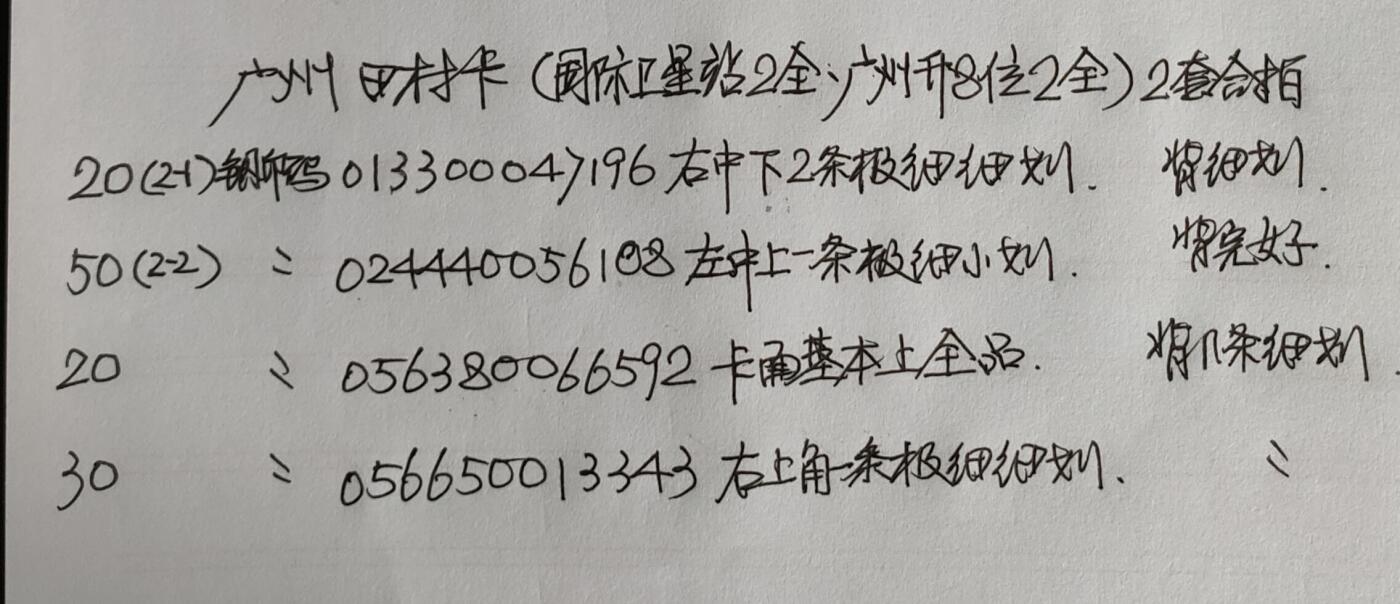 广州田村卡(国际卫星站2全、广州升8位2全)2套合拍
20(2-1)钢印码013300047196右中下2条极细细划. 背细划.
50(2-2) 〃 024440056108左中上一条极细小划. 背完好.
20 〃 056380066592卡面基本上全品. 背几条细划.
30 〃 056650013343右上角一条极细细划. 〃